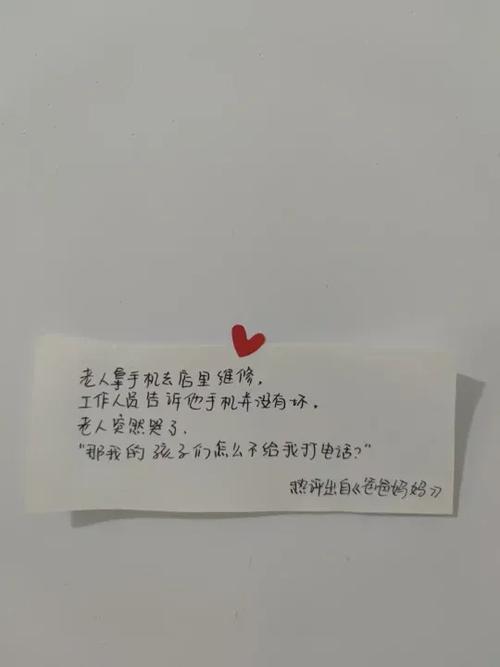 老人拿手机去店里维修，
工作人员告诉他手机并没有坏。
老人突然哭了，
“那我的孩子们怎么不给我打电话？”
热评出自《爸爸妈妈》